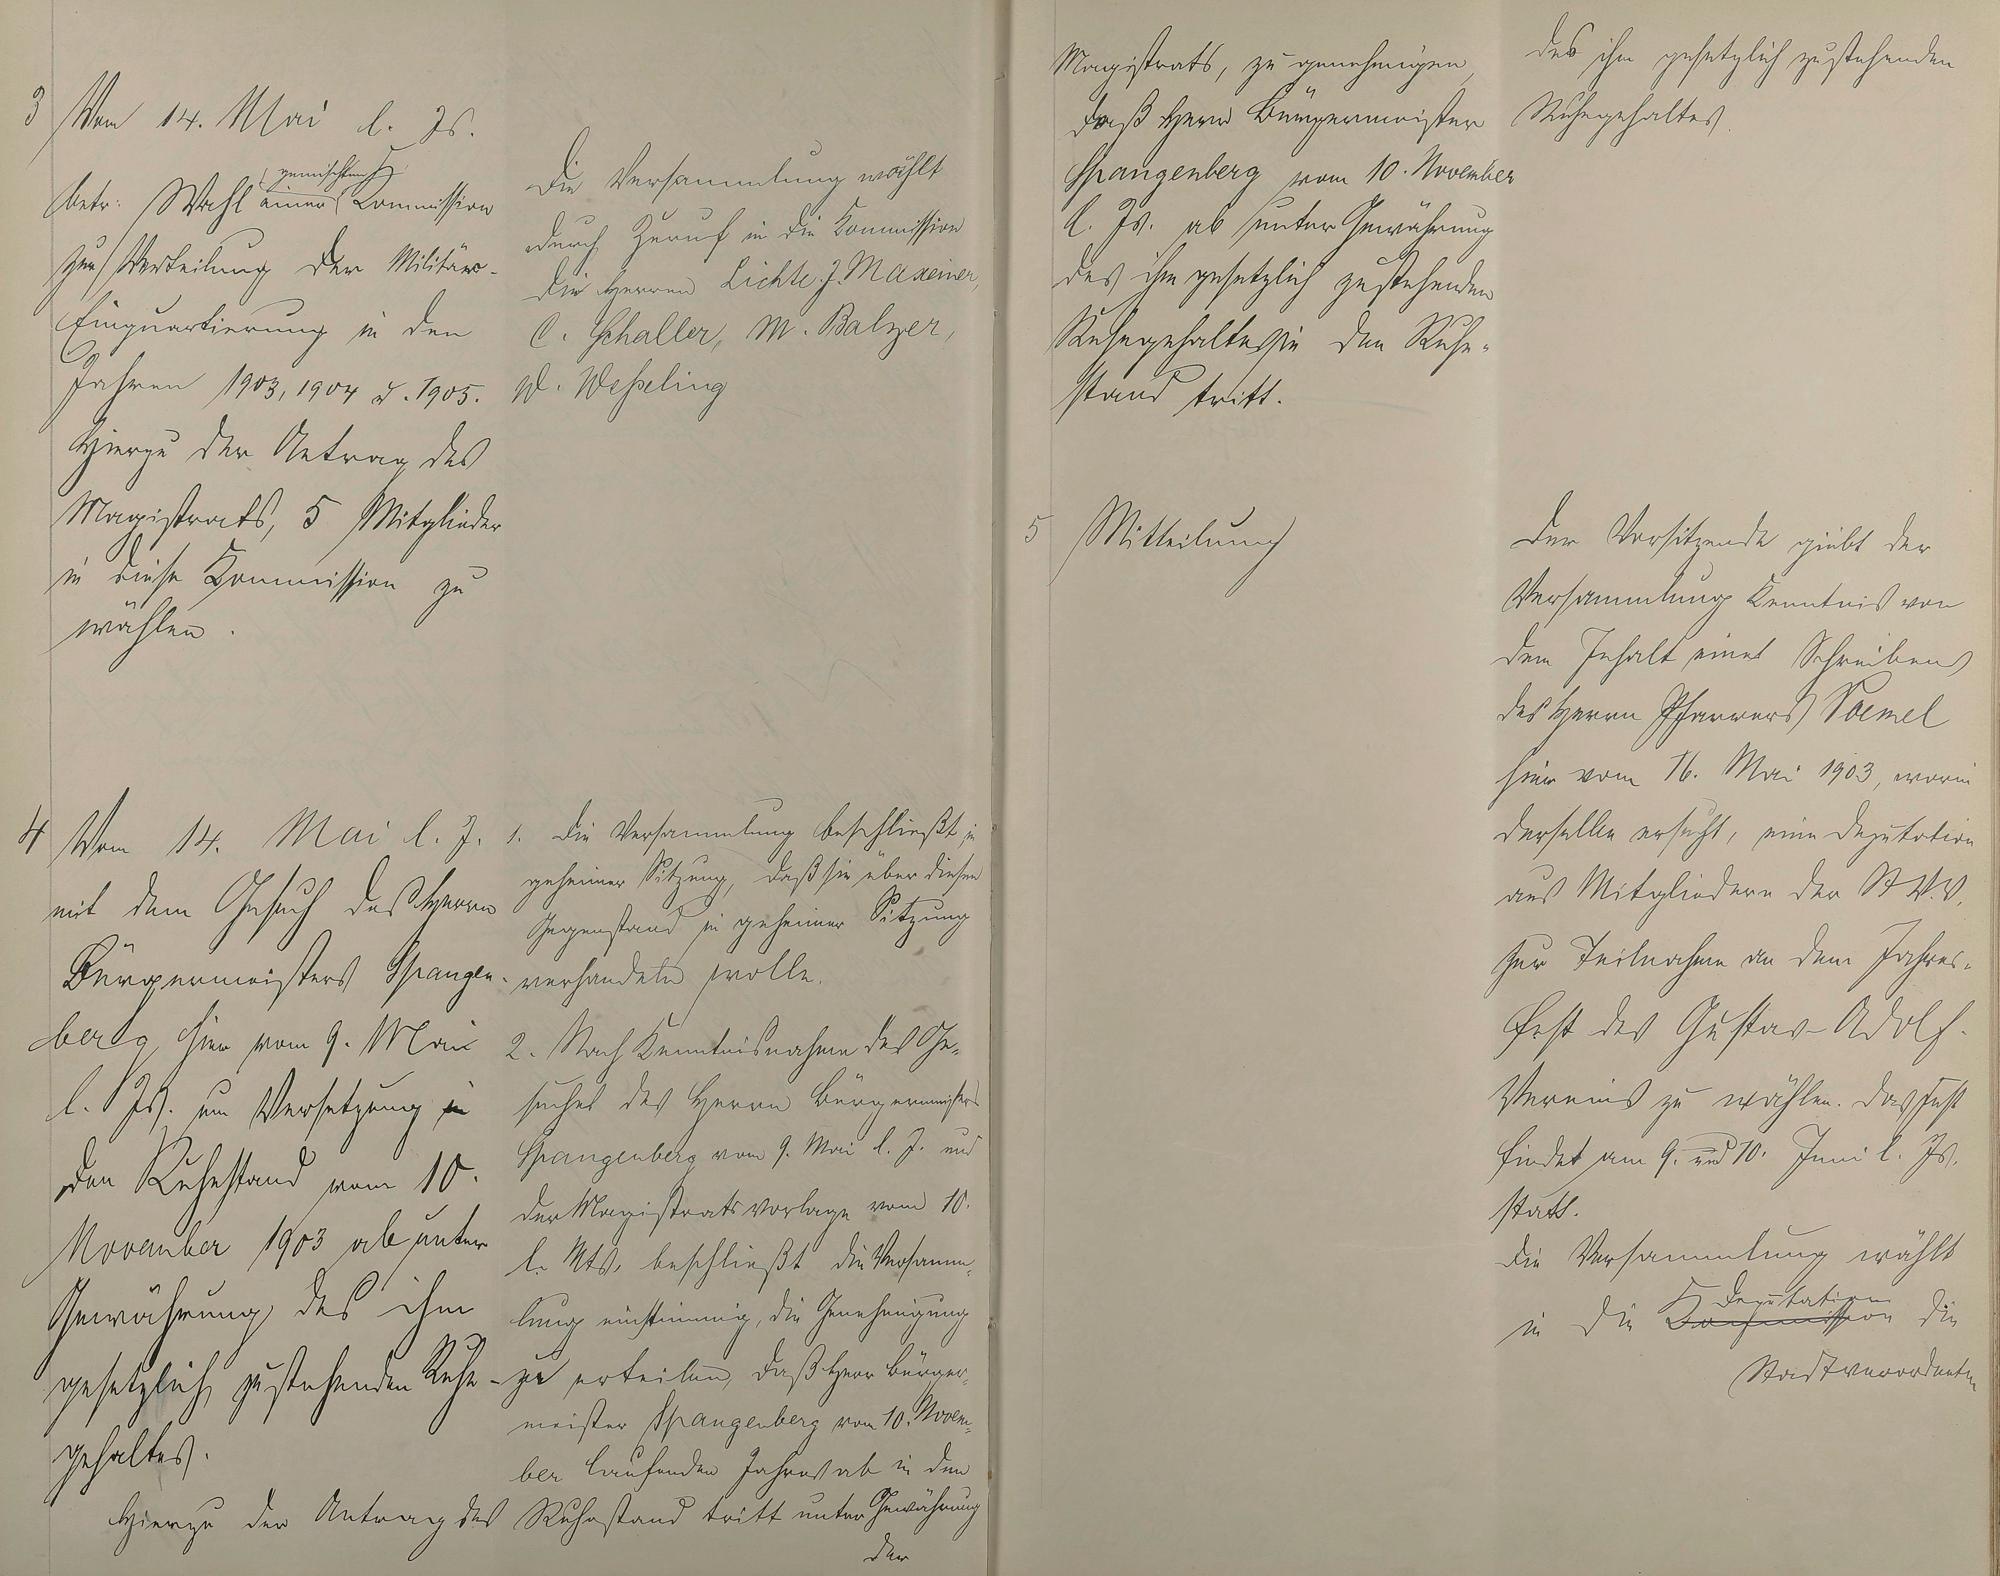 3 Vom 14. Mai l. Js.
betr. Wahl einer gemischten Kommission
zur Verteilung der Militär-
Einquartierung in den
Jahren 1903, 1904 u. 1905.
Hierzu der Antrag des
Magistrats, 5 Mitglieder
in diese Kommission zu
wählen.
Die Versammlung wählt
durch Zuruf in die Kommission
die Herren Lichte, J. Maxeiner,
C. Schaller, M. Balzer,
W. Weßeling
4 Vom 14. Mai l. J.
mit dem Gesuch des Herrn
Bürgermeisters Spangen-
berg hier vom 9. Mai
l. Js. um Versetzung in
den Ruhestand vom 10.
November 1903 ab unter
Gewährung des ihm
gesetzlich zustehenden Ruhe-
gehaltes.
Hierzu der Antrag des
1. Die Versammlung beschließt in
geheimer Sitzung, daß sie über diesen
Gegenstand in geheimer Sitzung
verhandeln wolle.
2. Nach Kenntnisnahme des Ge-
suches des Herrn Bürgermeisters
Spangenberg vom 9. Mai l. J. und
der Magistratsvorlage vom 10.
l. Mts. beschließt die Versamm-
lung einstimmig, die Genehmigung
zu erteilen, daß Herr Bürger-
meister Spangenberg vom 10. Novem-
ber laufenden Jahres ab in den
Ruhestand tritt unter Gewährung
der
Magistrats, zu genehmigen,
daß Herr Bürgermeister
Spangenberg vom 10. November
l. Js. ab unter Gewährung
des ihm gesetzlich zustehenden
Ruhegehaltes in den Ruhe-
stand tritt.
des ihm gesetzlich zustehenden
Ruhegehaltes.
5 Mitteilung
Der Vorsitzende giebt der
Versammlung Kenntnis von
dem Inhalt eines Schreibens
des Herrn Pfarrers Voemel
hier vom 16. Mai 1903, worin
derselbe ersucht, eine Deputation
aus Mitgliedern der St. V. V.
zur Teilnahme an dem Jahres-
fest des Gustav-Adolf-
Vereins zu wählen. Das Fest
findet am 9. und 10. Juni l. Js.
statt.
Die Versammlung wählt
in die Kommission Deputation die
Stadtverordneten